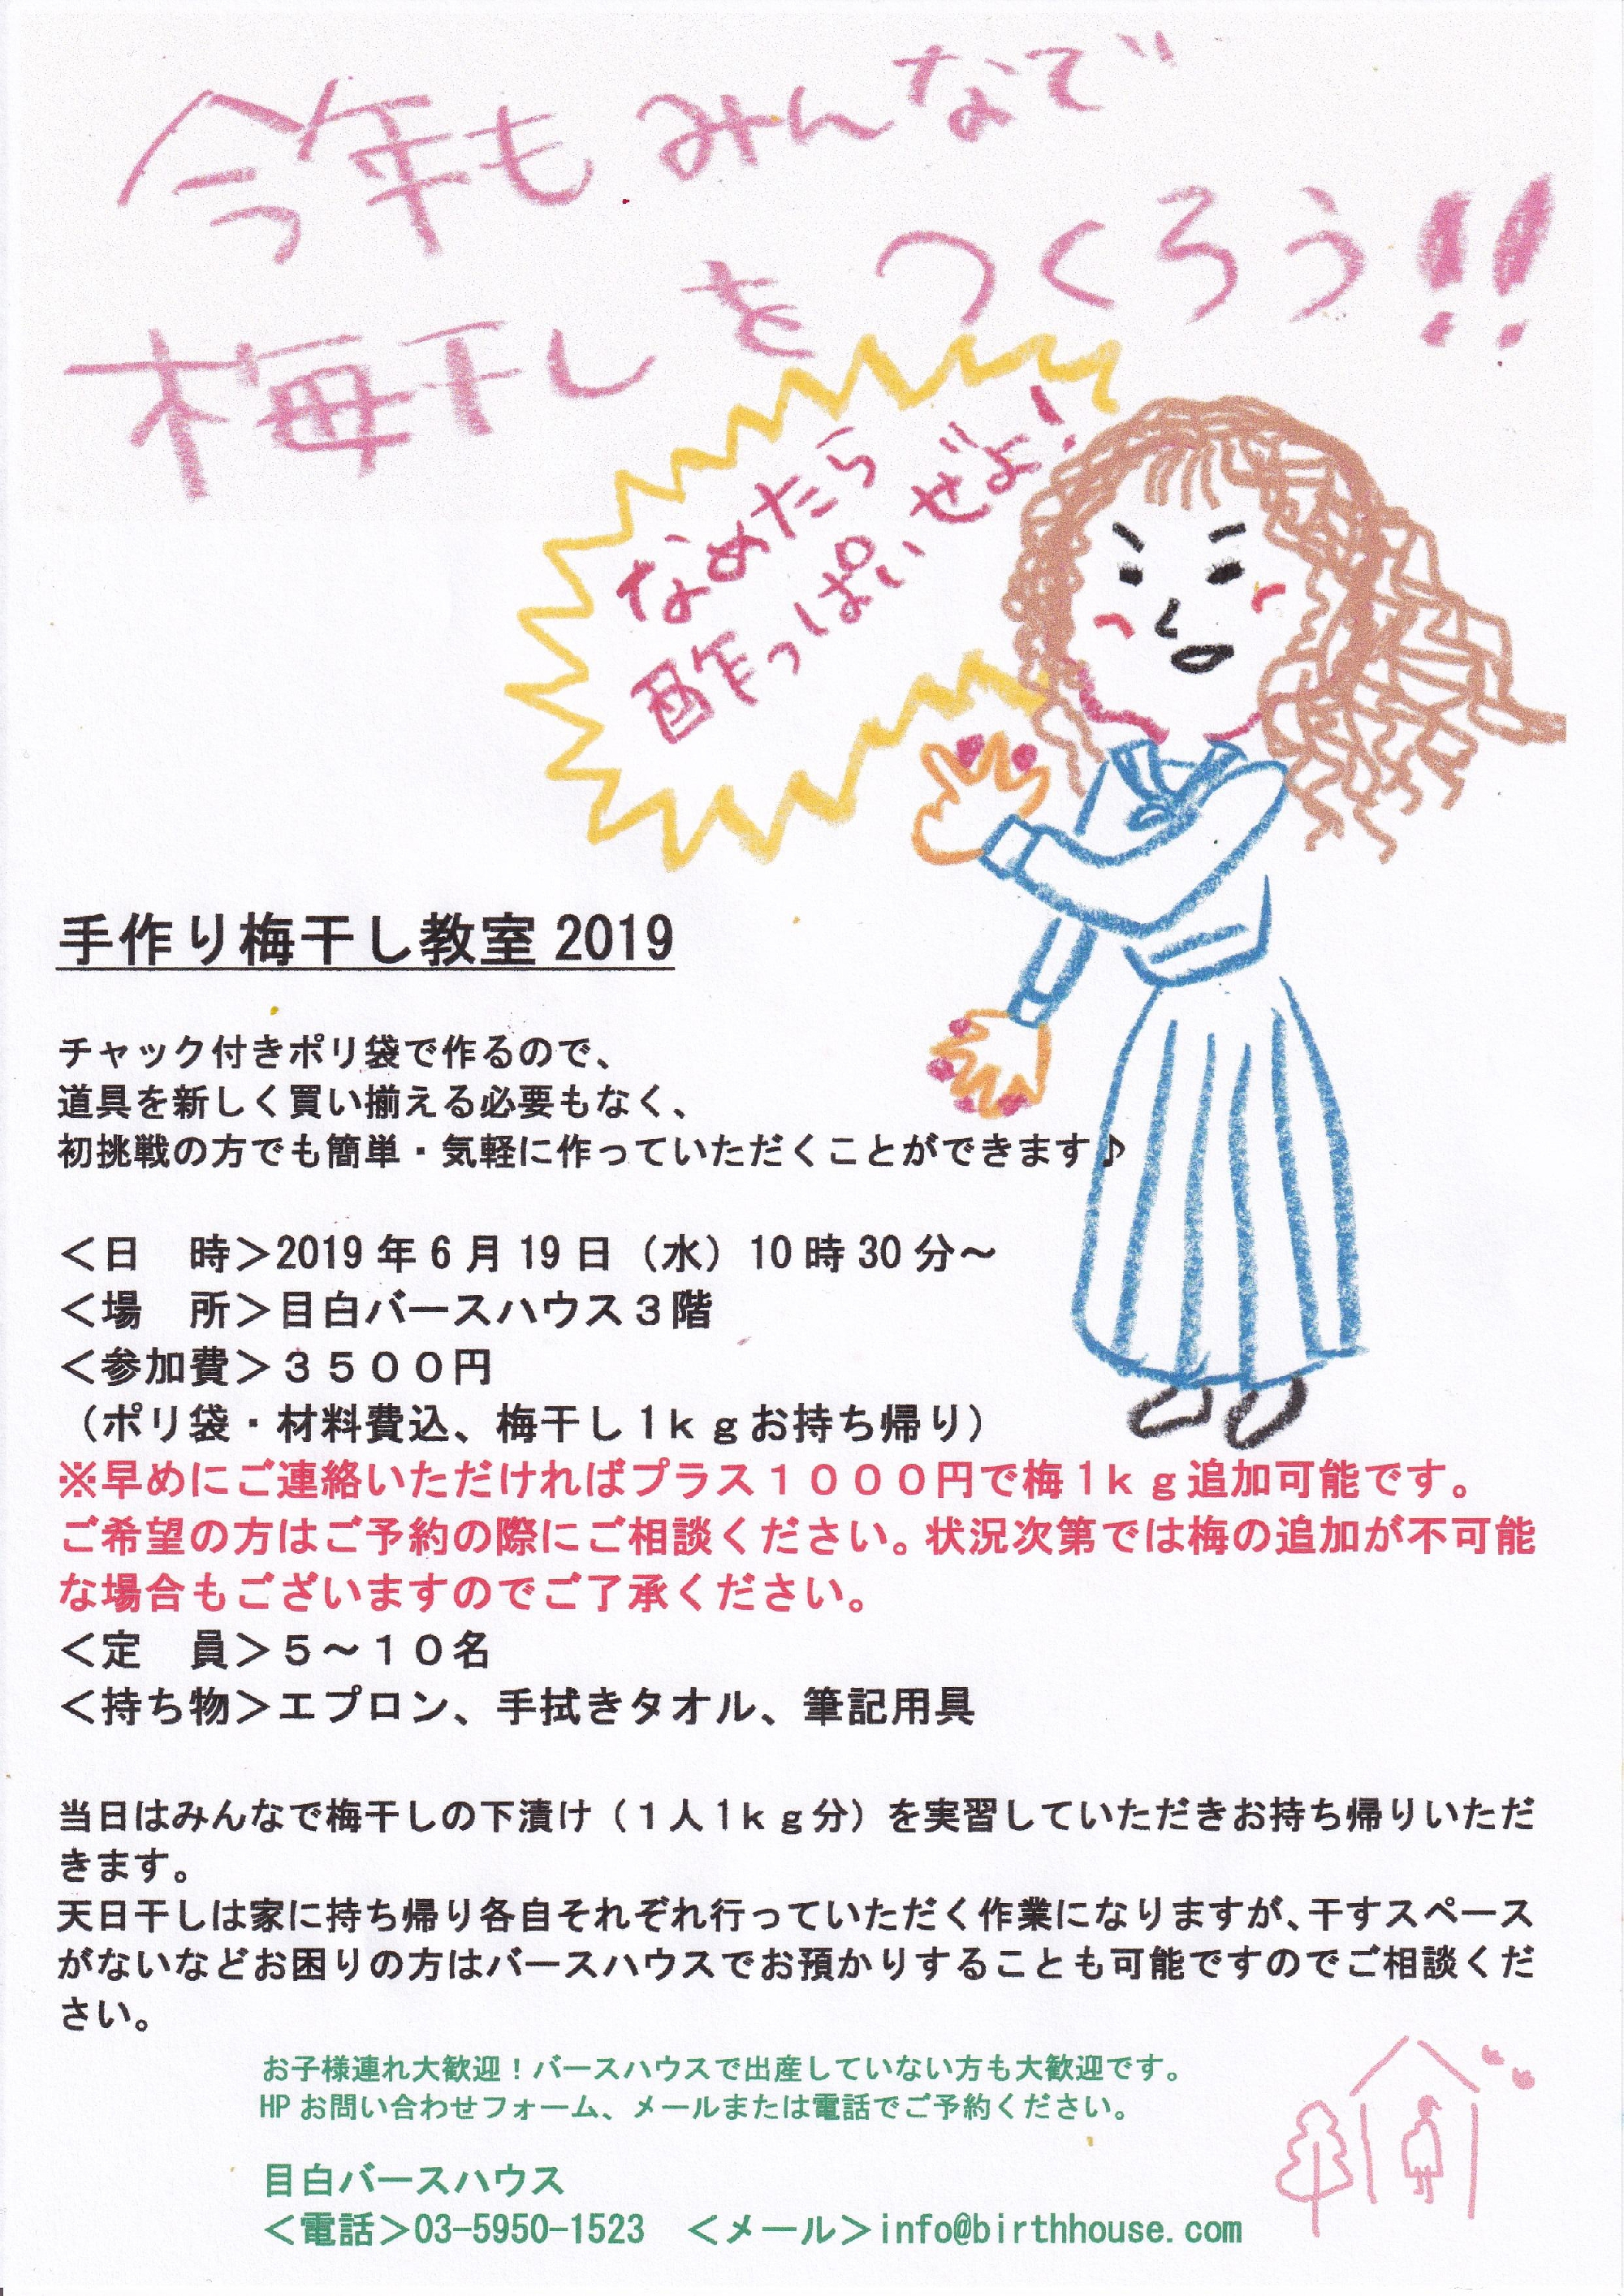 今年もみんなで
梅干しをつくろう!!
なめたら
酸っぱいぜよ!
手作り梅干し教室 2019
チャック付きポリ袋で作るので、
道具を新しく買い揃える必要もなく、
初挑戦の方でも簡単・気軽に作っていただくことができます♪
＜日　時＞2019 年 6 月 19 日（水）10 時 30 分～
＜場　所＞目白バースハウス３階
＜参加費＞３５００円
（ポリ袋・材料費込、梅干し 1ｋｇお持ち帰り）
※早めにご連絡いただければプラス１０００円で梅 1ｋｇ追加可能です。
ご希望の方はご予約の際にご相談ください。状況次第では梅の追加が不可能
な場合もございますのでご了承ください。
＜定　員＞５～１０名
＜持ち物＞エプロン、手拭きタオル、筆記用具
当日はみんなで梅干しの下漬け（１人 1ｋｇ分）を実習していただきお持ち帰りいただ
きます。
天日干しは家に持ち帰り各自それぞれ行っていただく作業になりますが、干すスペース
がないなどお困りの方はバースハウスでお預かりすることも可能ですのでご相談くだ
さい。
お子様連れ大歓迎！バースハウスで出産していない方も大歓迎です。
HP お問い合わせフォーム、メールまたは電話でご予約ください。
目白バースハウス
＜電話＞03-5950-1523　＜メール＞info@birthhouse.com